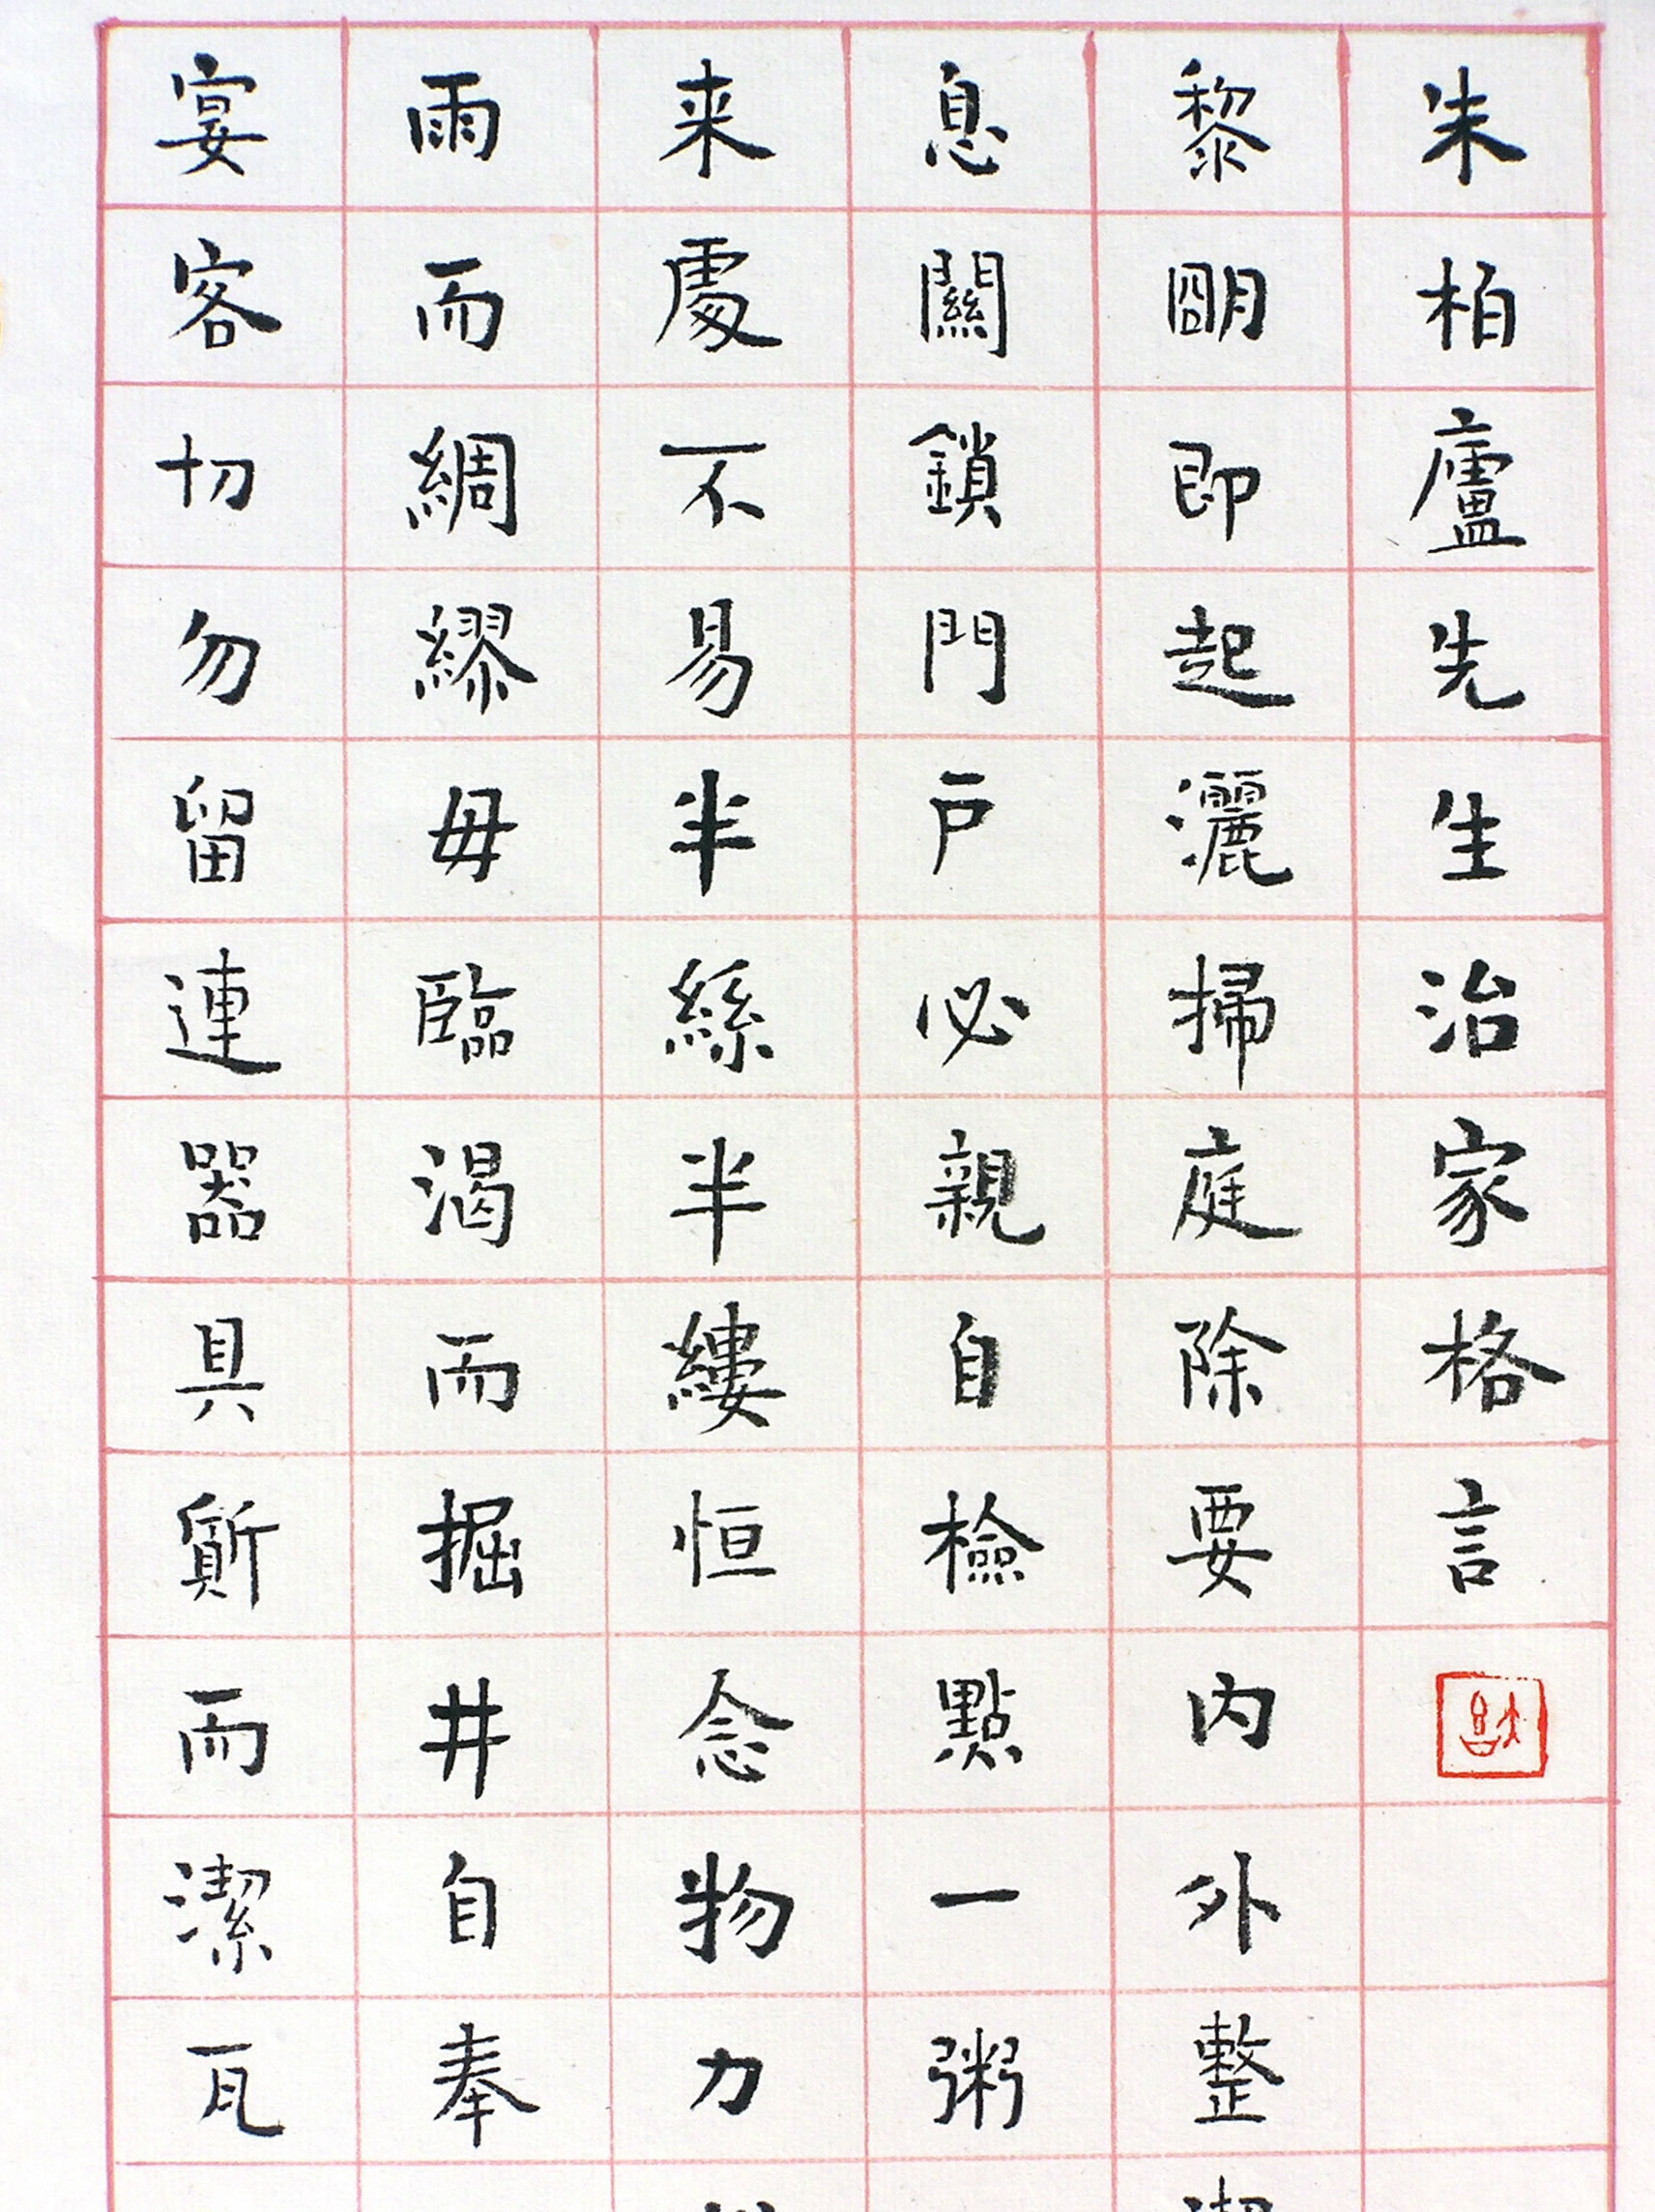 朱柏廬先生治家格言
黎朙即起灑掃庭除要內外整
息關鎖門戶必親自檢點一粥
来處不易半絲半縷恒念物力
雨而綢繆毋臨渴而掘井自奉
宴客切勿留連器具質而潔瓦